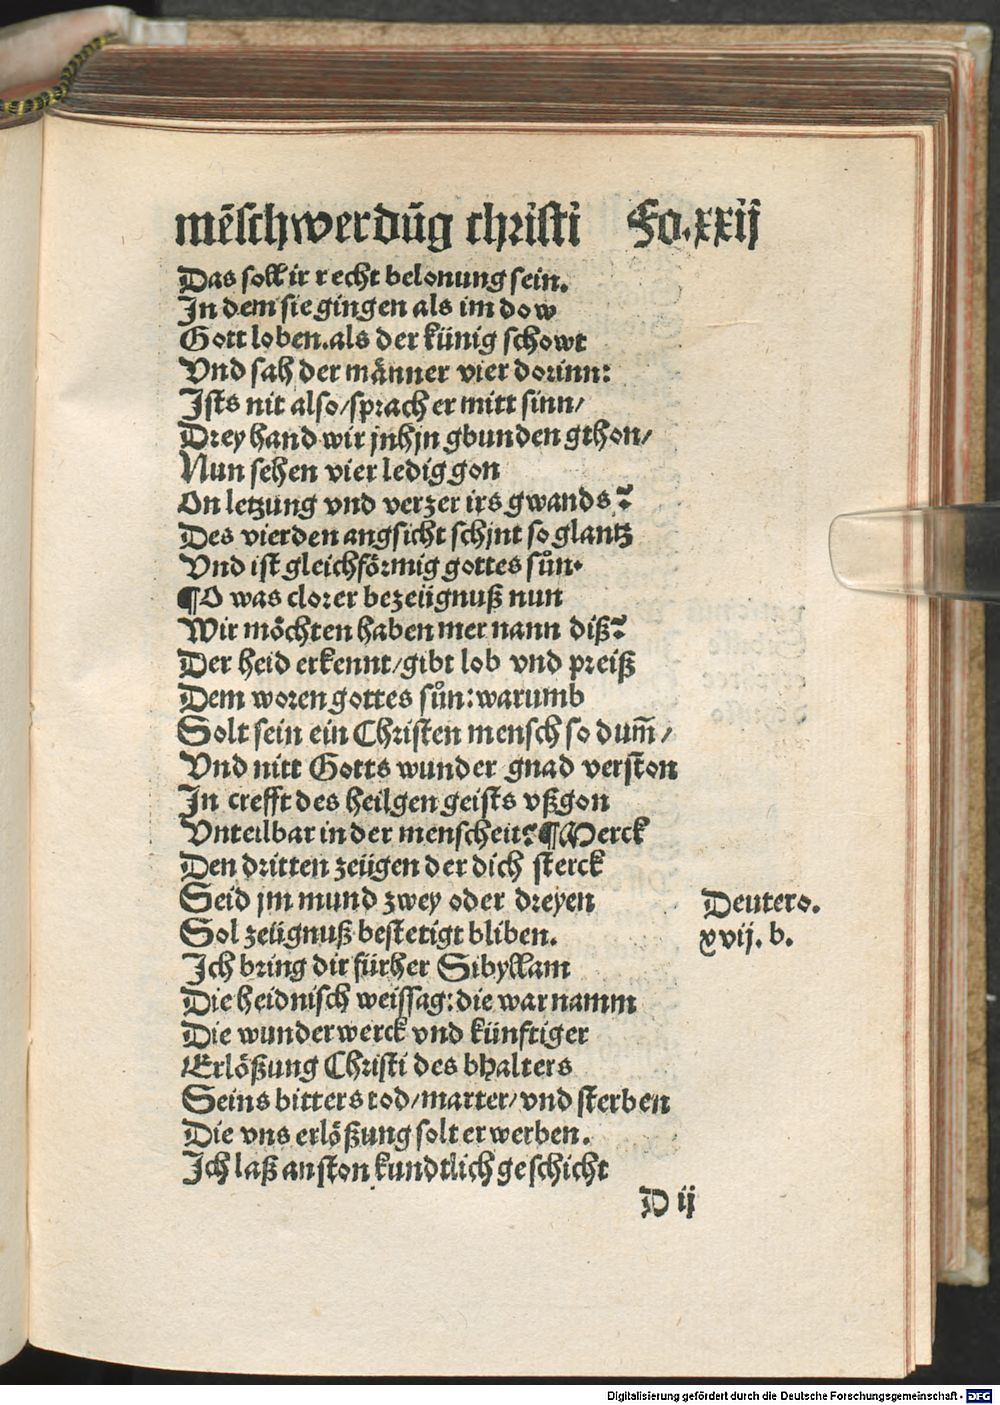 mẽschwerdũg christi Fo.xxij
Das soll ir recht belonung sein.
In dem sie gingen als im dow
Gott loben.als der künig schowt
Vnd sah der männer vier dorinn:
Ists nit also/sprach er mitt sinn/
Drey hand wir jnhjn gbunden gthon/
Nun sehen vier ledig gon
On letzung vnd verzer irs gwands?
Des vierden angsicht schjnt so glantz
Vnd ist gleichförmig gottes sůn.
¶O was clorer bezeügnuß nun
Wir möchten haben mer nann diß?
Der heid erkennt/gibt lob vnd preiß
Dem woren gottes sůn:warumb
Solt sein ein Christen mensch so dum̃/
Vnd nitt Gotts wunder gnad verston
In crefft des heilgen geists vßgon
Vnteilbar in der menscheit?¶Merck
Den dritten zeügen der dich sterck
Seid jm mund zwey oder dreyen
Deutero.
Sol zeügnuß bestetigt bliben.
xvij. b.
Ich bring dir fürher Sibyllam
Die heidnisch weissag:die war namm
Die wunderwerck vnd künftiger
Erlößung Christi des bhalters
Seins bitters tod/marter/vnd sterben
Die vns erlößung solt erwerben.
Ich laß anston kundtlich geschicht
D ij
Digitalisierung gefördert durch die Deutsche Forschungsgemeinschaft - DFG